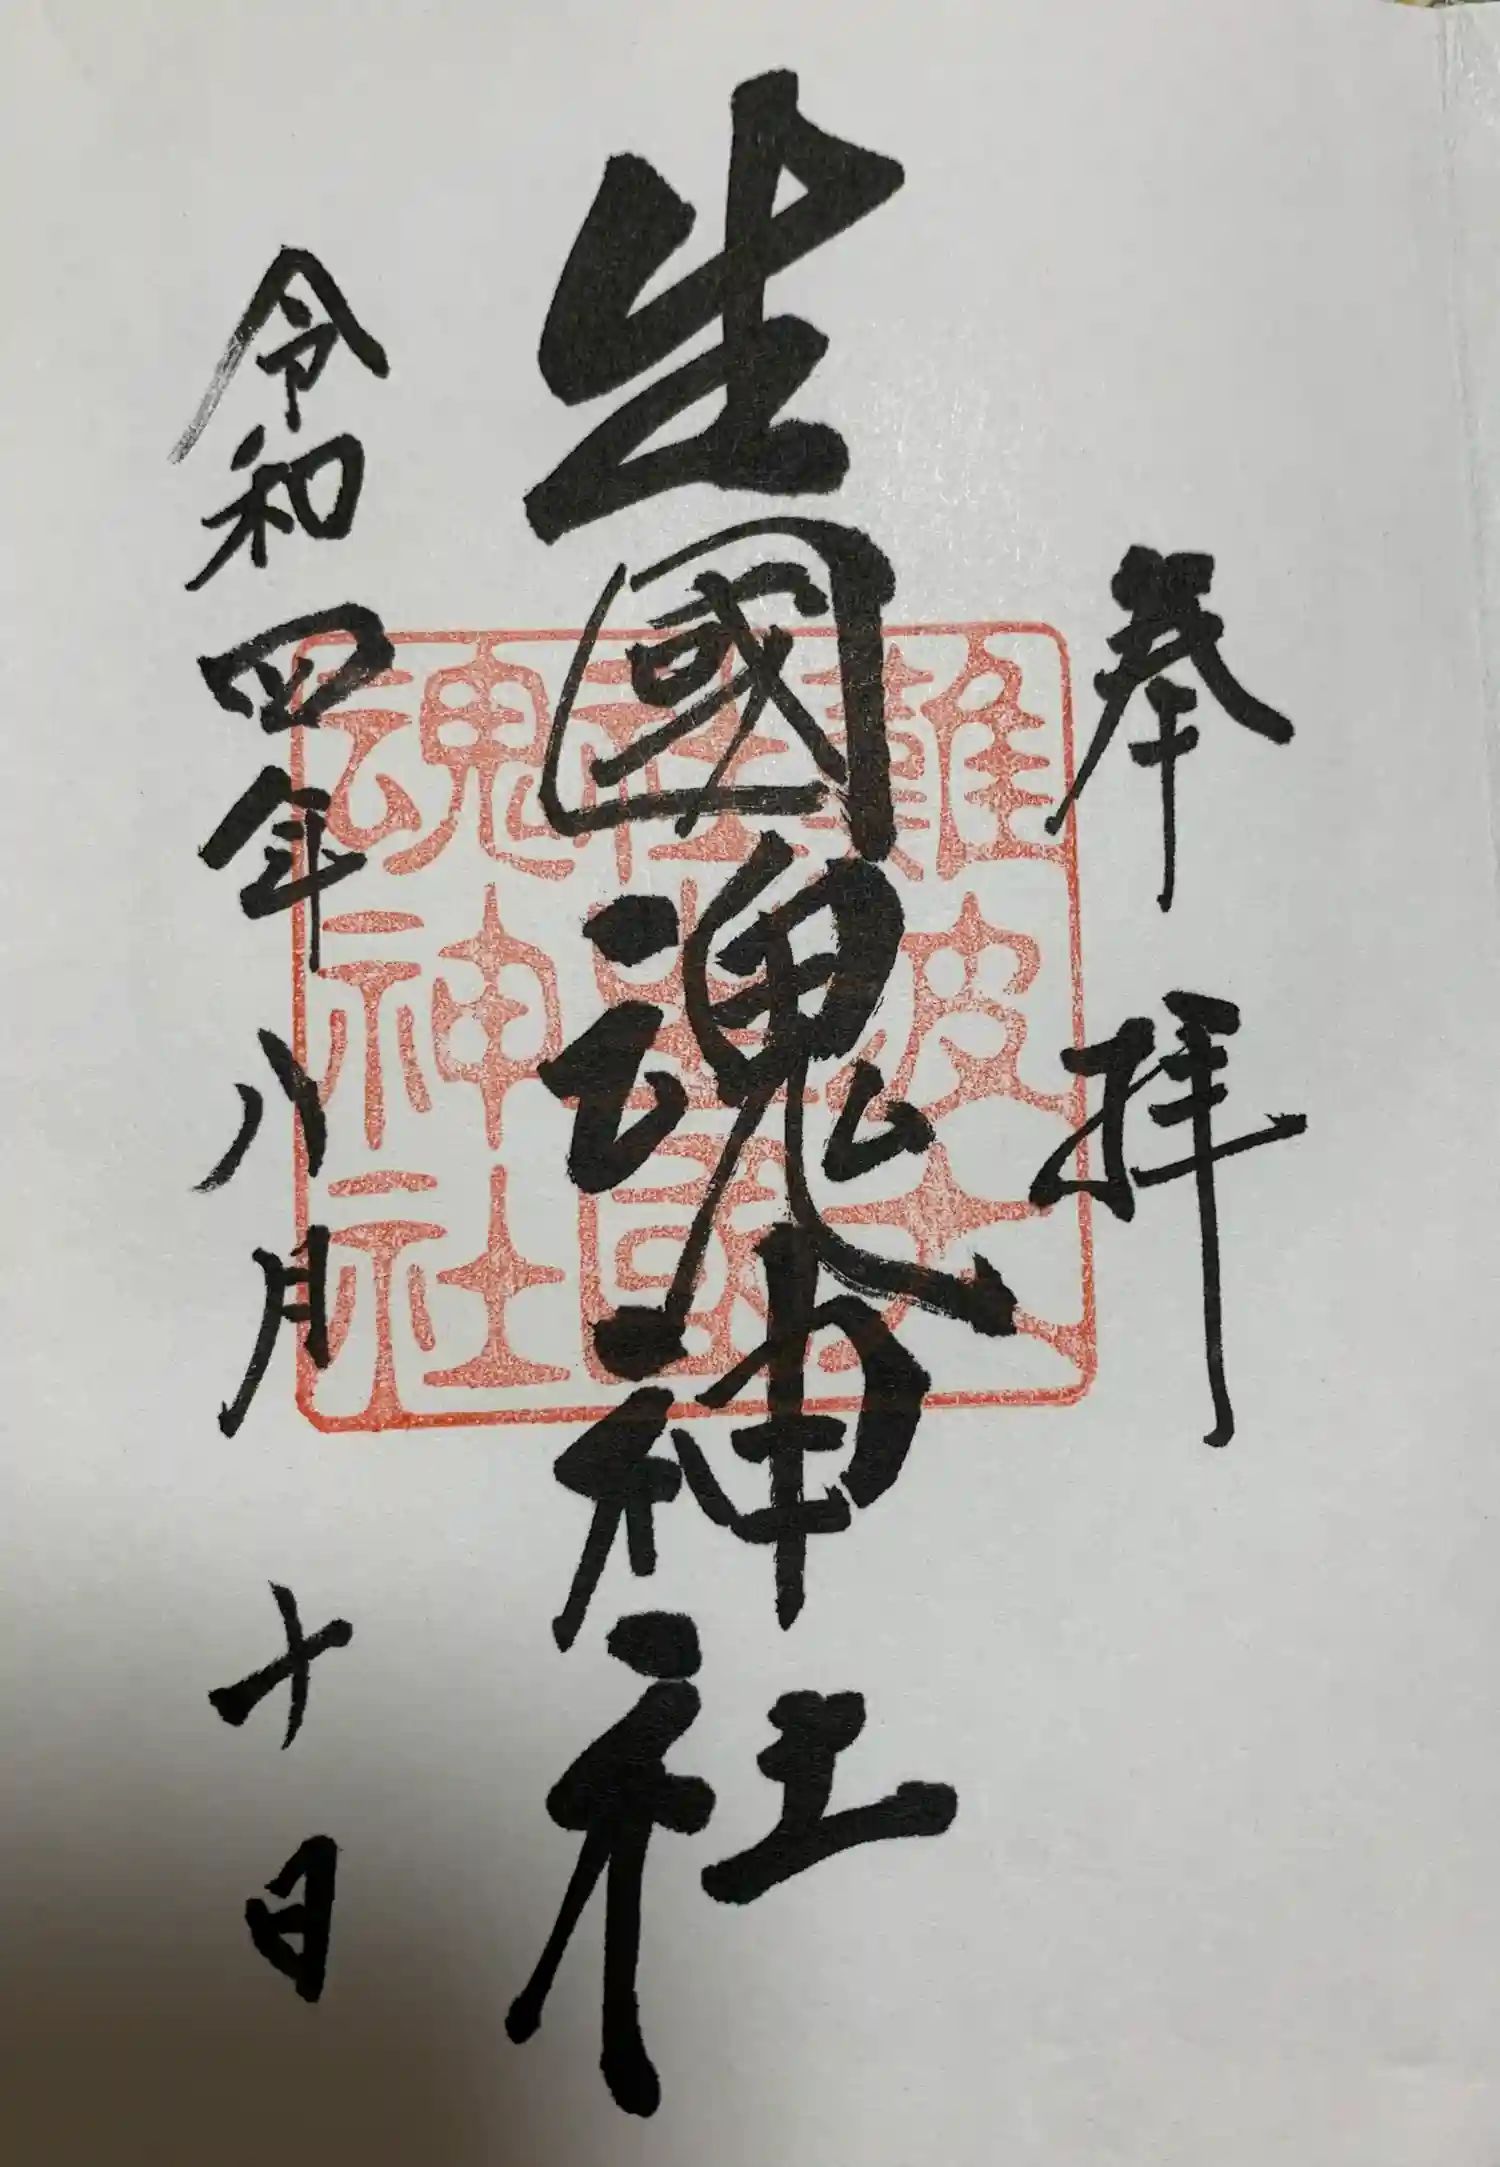 奉拝
生國魂神社
難波大
社生國
魂神社
令和四年八月十日